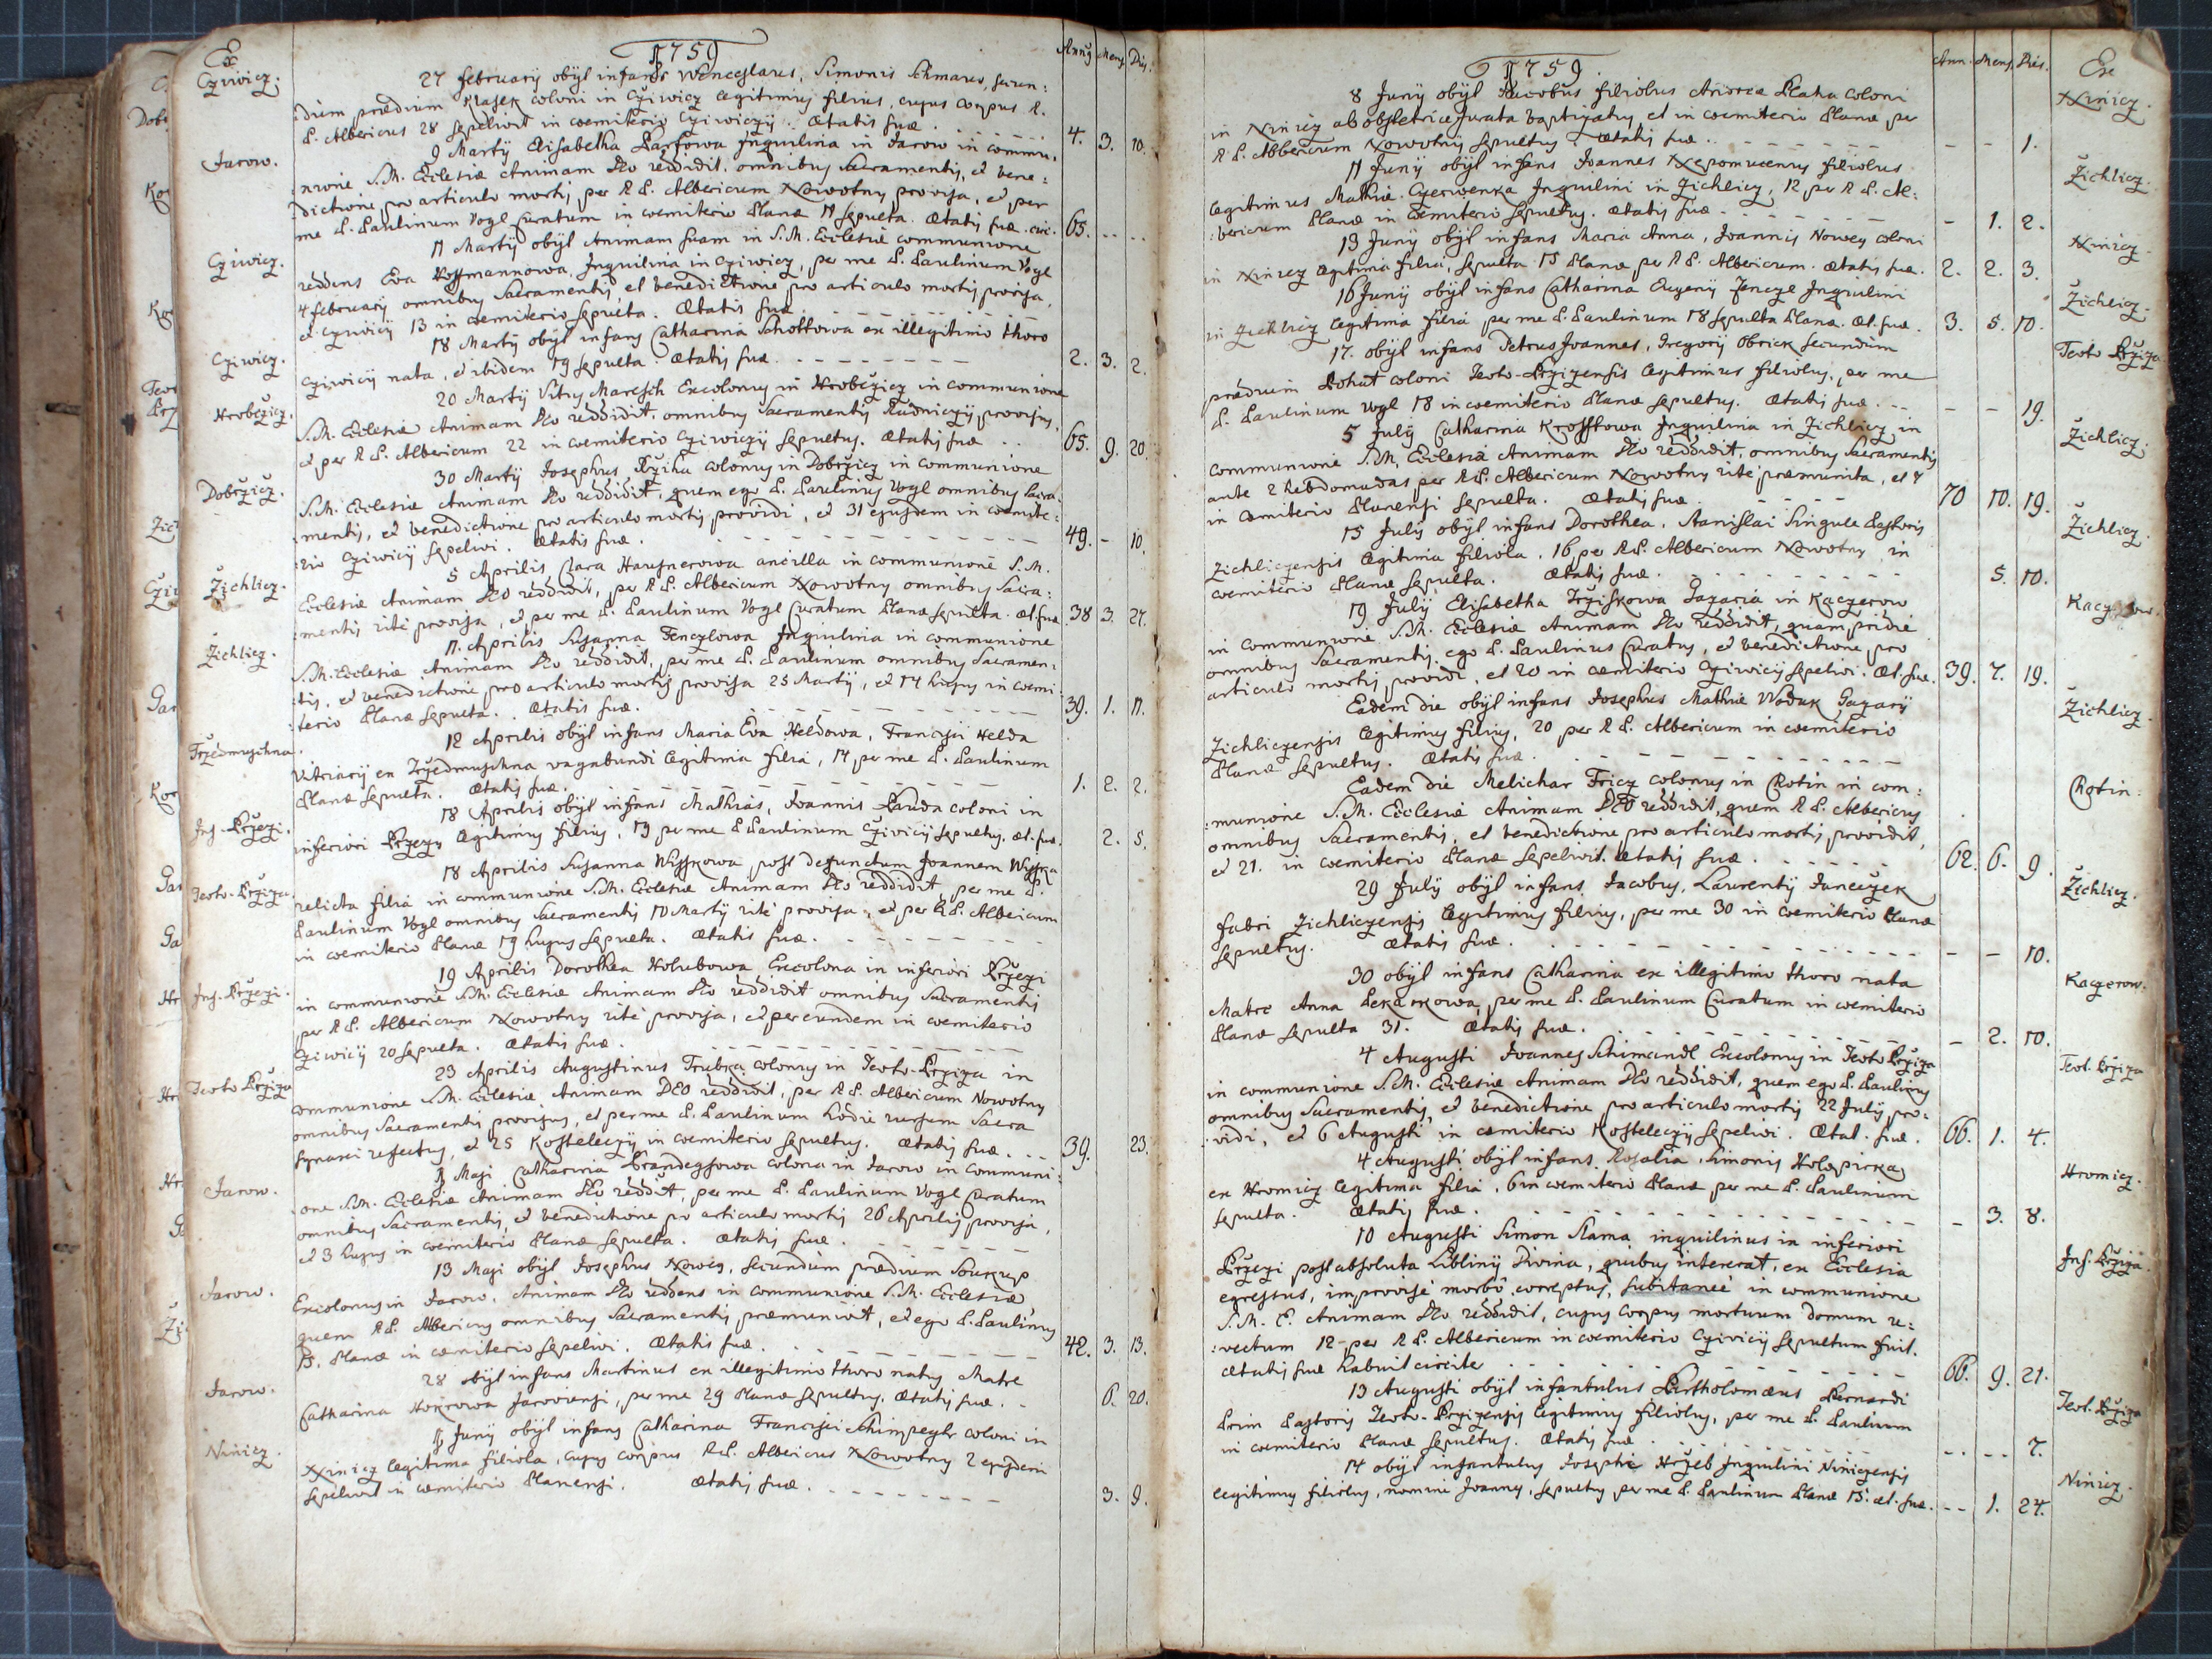 1759
Annÿ Mens. Dies.
Ex
Cziwicz.
27 februarÿ obÿt infans Wenceslaus, Simonis Schmaus, secun:
dum prædium Krasek coloni in Cziwicz legitimus filius, cujus corpus R.
P. Albericus 28 sepelivit in coemiterio Cziwiczÿ. Ætatis suæ. 4. 3. 10.
Jarow.
9 Martÿ Elisabetha Inquilina in Jarow in commu:
nione S.M. Ecclesiæ Animam Deo reddidit, omnibus Sacramentis, et bene:
dictione pro articulo mortis per R P. Albericum Nowotny provisa, et per
me P. Paulinum Vogl Curatum in coemiterio Planæ 11 sepulta. Ætatis suæ. circ. 65. -- --
Cziwicz.
11 Martÿ obÿt Animam suam in S.M. Ecclesiæ communione
reddens Eva Hoffmannowa, Inquilina in Cziwicz, per me P. Paulinum Vogl
4 februarÿ omnibus Sacramentis et benedictione pro articulo mortis provisa,
et Cziwicÿ 13 in coemiterio sepulta. Ætatis suæ
Cziwicz.
18 Martÿ obÿt infans Catharina Schottowa ex illegitimo thoro
Cziwicÿ nata, et ibidem 19 sepulta. Ætatis suæ. 2. 3. 2.
Hrobczicz.
20 Martÿ Vitus Maresch Excolonus in Hrobczicz in communione
S.M. Ecclesiæ Animam Deo reddidit, omnibus Sacramentis provisus,
et per R P. Albericum 22 in coemiterio Cziwiczÿ sepultus. Ætatis suæ .. 65. 9. 20.
Dobrzicz.
30 Martÿ Josephus Rziha colonus in Dobrzicz in communione
S.M. Ecclesiæ Animam Deo reddidit, quem ego P. Paulinus Vogl omnibus Sacra:
mentis, et benedictione pro articulo mortis providi, et 31 ejusdem in coemite:
rio Cziwicÿ sepelivi. Ætatis suæ. 49. - 10.
Žichlicz.
5 Aprilis Clara Hausnerowa ancilla in communione S.M.
Ecclesiæ Animam Deo reddidit, per R P. Albericum Nowotny omnibus Sacra:
mentis rite provisa, et per me P. Paulinum Vogl Curatum Planæ sepulta. Æt. suæ 38 3. 27.
Žichlicz.
11. Aprilis Susanna Fenczlowa Inquilina in communione
S.M. Ecclesiæ Animam Deo reddidit, per me P. Paulinum omnibus Sacramen:
tis, et benedictione pro articulo mortis provisa 25 Martÿ, et 14 hujus in coemi:
terio Planæ sepulta. Ætatis suæ. 39. 1. 11.
Trzedmuschna.
12 Aprilis obÿt infans Maria Eva Heldowa, Francisci Helda
Vitriarÿ ex Trzedmuschna vagabundi legitima filia, 14 per me P. Paulinum
Planæ sepulta. Ætatis suæ. 1. 2. 2.
Inf. Brzezi.
18 Aprilis obÿt infans Mathias, Joannis Lauda coloni in
inferiori Brzezy legitimus filius, 19 per me P Paulinum Cziwicÿ sepultus. æt. suæ. 2. 5.
Teoto-Brziza.
18 Aprilis Susanna Wisskowa, post defunctum Joannem Wisska
relicta filia in communione S.M. Ecclesiæ Animam Deo reddidit, per me P.
Paulinum Vogl omnibus Sacramentis 10 Martÿ rite provisa, et per R P. Albericum
in coemiterio Planæ 19 hujus sepulta. Ætatis suæ.
Inf. Brzezi.
19 Aprilis Dorothea Holubowa Excolona in inferiori Brzezi
in communione S.M. Ecclesiæ Animam Deo reddidit omnibus Sacramentis
per R P. Albericum Nowotny rite provisa, et per eundem in coemiterio
Cziwicÿ 20 sepulta. Ætatis suæ.
Teoto Brziza
23 Aprilis Augustinus Trubka colonus in Teoto-Brziza in
communione S.M. Ecclesiæ Animam DEO reddidit, per R P. Albericum Nowotny
omnibus Sacramentis provisus, et per me P. Paulinum hodie rursum Sacra
Synaxi refectus, et 25 Kosteleczÿ in coemiterio sepultus. Ætatis suæ. 39. 23.
Jarow.
1 Maji Catharina Brandeysowa colona in Jarow in communi:
one S.M. Ecclesiæ Animam Deo reddidit, per me P. Paulinum Vogl Curatum
omnibus Sacramentis, et benedictione pro articulo mortis 26 Aprilis provisa,
et 3 hujus in coemiterio Planæ sepulta. Ætatis suæ.
Jarow.
13 Maji obÿt Josephus Nowey, secundum prædium Soukup
Excolonus in Jarow. Animam Deo reddens in communione S.M. Ecclesiæ
quem R P. Albericus omnibus Sacramentis præmunivit, et ego P. Paulinus
15. Planæ in coemiterio sepelivi. Ætatis suæ. 42. 3. 13.
Jarow.
28 obÿt infans Martinus ex illegitimo thoro natus Matre
Catharina Kokrowa Jarowiensi, per me 29 Planæ sepultus. Ætatis suæ. 6. 20.
Ninicz.
1 Junÿ obÿt infans Catharina Francisci Schimpeyle coloni in
Ninicz legitima filiola, cujus corpus R P. Albericus Nowotny 2 ejusdem
sepelivit in coemiterio Planensi. Ætatis suæ. 3. 9.
1759.
Ann. Mens. Dies.
Ex
Ninicz.
8 Junÿ obÿt Jacobus filiolus Andreæ Blaha coloni
in Ninicz ab obstetrice Jurata baptizatus, et in coemiterio Planæ per
R P. Albericum Nowotny sepultus. Ætatis suæ. - - 1.
Žichlicz.
11 Junÿ obÿt infans Joannes Nepomucenus filiolus
legitimus Mathiæ Czerwenka Inquilini in Zichlicz, 12 per R P. Al:
bericum Planæ in Coemiterio sepultus. Ætatis suæ. - 1. 2.
Ninicz
13 Junÿ obÿt infans Maria Anna, Joannis Nowey coloni
in Ninicz legitima filia, sepulta 15 Planæ per R P. Albericum. Ætatis suæ. 2. 2. 3.
Žichlicz.
16 Junÿ obÿt infans Catharina Eugenÿ Fenczl Inquilini
in Zichlicz legitima filia per me P. Paulinum 18 sepulta Planæ. Æt. suæ. 3. 5. 10.
Teoto Brziza
17. obÿt infans Petrus Joannes, Gregorÿ Obrick secundum
prædium Bohut coloni Teoto-Brzizensis legitimus filiolus, per me
P. Paulinum Vogl 18 in coemiterio Planæ sepultus. Ætatis suæ. - - 19.
Žichlicz.
5 Julÿ Catharina Krofftowa Inquilina in Zichlicz in
communione S.M. Ecclesiæ Animam Deo reddidit, omnibus Sacramentis
ante 2 hebdomadas per R P. Albericum Nowotny rite præmunita, et 7
in Coemiterio Planensi sepulta. Ætatis suæ. 70 10. 19.
Žichlicz.
15 Julÿ obÿt infans Dorothea, Stanislai Singule Pastoris
Zichliczensis legitima filiola, 16 per R P. Albericum Nowotny in
coemiterio Planæ sepulta. Ætatis suæ. 5. 10.
19 Julÿ Elisabetha Trziskowa Gazaria in Kaczerow
in communione S.M. Ecclesiæ Animam Deo reddidit, quam pridie
omnibus Sacramentis, ego P. Paulinus Curatus, et benedictione pro
articulo mortis providi, et 20 in coemiterio Cziwicÿ sepelivi. Æt. suæ. 39. 7. 19.
Žichlicz.
Eadem die obÿt infans Josephus Mathiæ Woduk Gazarÿ
Zichliczensis legitimus filius, 20 per R P. Albericum in coemiterio
Planæ sepultus. Ætatis suæ.
Chotin:
Eadem die Melichar Fricz colonus in Chotin in com:
munione S.M. Ecclesiæ Animam DEO reddidit, quem R P. Albericus
omnibus Sacramentis, et benedictione pro articulo mortis providit,
et 21. in coemiterio Planæ sepelivit. Ætatis suæ. 62. 6. 9.
Žichlicz.
29 Julÿ obÿt infans Jacobus, Laurentÿ Janeczek
fabri Zichliczensis legitimus filius, per me 30 in coemiterio Planæ
sepultus. Ætatis suæ. - - 10.
Kaczerow.
30 obÿt infans Catharina ex illegitimo thoro nata
Matre Anna Pekarkowa, per me P. Paulinum Curatum in coemiterio
Planæ sepulta 31. Ætatis suæ. - 2. 10.
Teot. Brziza
4 Augusti Joannes Schimandl Excolonus in Teoto Brziza
in communione S.M. Ecclesiæ Animam Deo reddidit, quem ego P. Paulinus
omnibus Sacramentis, et benedictione pro articulo mortis 22 Julÿ, pro:
vidi, et 6 Augusti in coemiterio Kosteleczÿ sepelivi. Ætat. suæ. 66. 1. 4.
Hromicz.
4 Augusti obÿt infans Rosalia, Simonis Holopirka
ex Hromicz legitima filia, 6 in coemiterio Planæ per me P. Paulinum
sepulta. Ætatis suæ. - 3. 8.
Inf. Brziza.
10 Augusti Simon Slama inquilinus in inferiori
Brzezi post absoluta Liblinÿ Divina, quibus intererat, ex Ecclesia
egressus, improviso morbo correptus, subitanee in communione
S.M.E. Animam Deo reddidit, cujus corpus mortuum domum re:
vectum 12 per R P. Albericum in coemiterio Cziwicÿ sepultum fuit.
Ætatis suæ habuit circiter 66. 9. 21.
Teot. Brziza
13 Augusti obÿt infantulus Bartholomæus Bernardi
Brim Pastoris Teoto-Brzizensis legitimus filiolus, per me P. Paulinum
in coemiterio Planæ sepultus. Ætatis suæ -- -- 7.
Ninicz.
14 obÿt infantulus Josephi Hrzeb Inquilini Niniczensis
legitimus filiolus, nomine Joannes, sepultus per me P. Paulinum Planæ 15. æt. suæ. -- 1. 24.